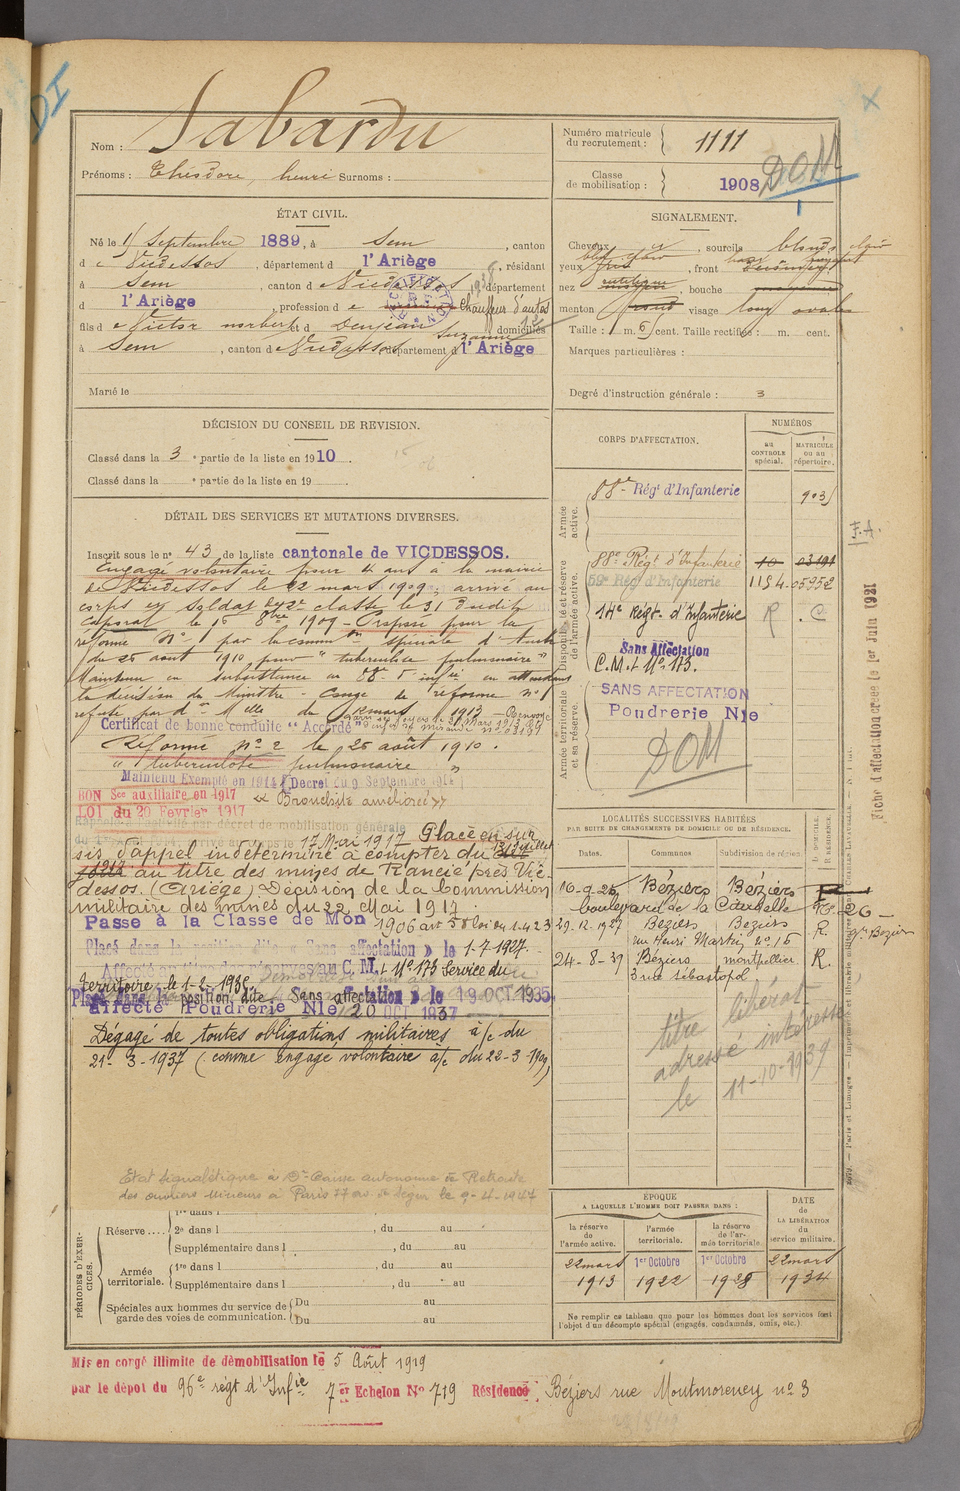 DI
Nom : Sabardu
Prénoms : Théodore, henri Surnoms :
Numéro matricule du recrutement : 1111
Classe de mobilisation : 1908 DOM
ÉTAT CIVIL.
Né le 1er Septembre 1889, à Sem, canton
de Vicdessos, département d l'Ariège, résidant
à Sem, canton d e Vicdessos, département
d l'Ariège, profession d e Chauffeur d'autos
fils d e Victor norbert et d Denjean Suzanne domiciliés
à Sem, canton de Vicdessos, département d l'Ariège
Marié le
SIGNALEMENT.
Cheveux, sourcils blonds clair
yeux gris, front
nez, bouche
menton rond visage long ovale
Taille : 1 m. 65 cent. Taille rectifiée : m. cent.
Marques particulières :
Degré d'instruction générale : 3
DÉCISION DU CONSEIL DE REVISION.
Classé dans la 3e partie de la liste en 1910.
Classé dans la e partie de la liste en 19
DÉTAIL DES SERVICES ET MUTATIONS DIVERSES.
Inscrit sous le n° 43 de la liste cantonale de VICDESSOS.
Engagé volontaire pour 4 ans à la mairie
de Vicdessos le 22 mars 1909; arrivé au
corps et soldat de 2e classe le 31 dudit
Caporal le 16 8bre 1909 - Proposé pour la
réforme N° 1 par la comm on spéciale d'
du 25 août 1910 pour "tuberculose pulmonaire"
Maintenu en subsistance au 88e d'infie en attendant
la décision du Ministre - Congé de réforme n° 1
refusé par don Melle du mars 1913 - Renvoyé
Certificat de bonne conduite "Accordé"
Réformé n° 2 le 25 août 1910.
"tuberculose pulmonaire"
Maintenu Exempté en 1914 (Décret du 9 Septembre 1914)
BON Sce auxiliaire en 1917 "Bronchite améliorée"
LOI du 20 Février 1917
Rappelé à l'activité par décret de mobilisation générale
arrivé au corps le 17 Mai 1917 Placé en sur
sis d'appel indéterminé à compter du
au titre des mines de Rancié près Vic-
dessos. (Ariège) Décision de la Commission
militaire des mines du 22 Mai 1917.
Passé à la Classe de Mon 1906 art 58 loi du 1.4.23
Placé dans la position dite « Sans affectation » le 1-7-1927.
Affecté au C.M. t no 173 Service du
territoire, le 1-2-1935
Placé dans la position dite « Sans affectation » le 19 OCT 1935
affecté Poudrerie Nle 20 OCT 1937
Dégagé de toutes obligations militaires à/c du
21-3-1937 (comme engagé volontaire à/c du 22-3-1909)
Etat signalétique à Dr Caisse autonome de Retraite
des ouvriers Mineurs à Paris 77 av de Ségur le 9-4-1947
CORPS D'AFFECTATION.
NUMÉROS
au CONTROLE spécial.
MATRICULE OU AU répertoire.
Armée active.
88e Régt d'Infanterie 903
Disponibilité et réserve de l'armée active.
88e Régt d'Infanterie 10 03191
59e Rég d'Infanterie 1154 05952
14e Régt d'Infanterie R. C
Sans Affectation
C.M. t No 173.
Armée territoriale et sa réserve.
SANS AFFECTATION
Poudrerie Nle
DOM
LOCALITÉS SUCCESSIVES HABITÉES
PAR SUITE DE CHANGEMENTS DE DOMICILE OU DE RÉSIDENCE.
Dates. Communes Subdivision de région. D. DOMICILE. R. RÉSIDENCE.
16-9-26 Béziers Béziers
boulevard de la Citadelle
29.12.1927 Beziers Beziers R.
rue Henri Martin, no 16
24-8-39 Béziers montpellier R.
3 rue Sébastopol
titre libérat
adressé intéressé
le 11-10-1939
F.A.
Fiche d'affectation créée le 1er Juin 1921
PÉRIODES D'EXERCICES.
1re dans l, du au
Réserve.... 2e dans l, du au
Supplémentaire dans l, du au
Armée territoriale. 1re dans l, du au
Supplémentaire dans l, du au
Spéciales aux hommes du service de garde des voies de communication. Du au
Du au
ÉPOQUE
A LAQUELLE L'HOMME DOIT PASSER DANS :
la réserve de l'armée active.
l'armée territoriale.
la réserve de l'armée territoriale.
DATE de LA LIBÉRATION du service militaire.
22 mars 1913
1er Octobre 1922
1er Octobre 1928
22 mars 1934
Ne remplir ce tableau que pour les hommes dont les services font l'objet d'un décompte spécial (engagés, condamnés, omis, etc.).
Mis en congé illimité de démobilisation le 5 Août 1919
par le dépôt du 96e régt d'Infie 7er Echelon No 719 Résidence Béziers rue Montmorency no 3